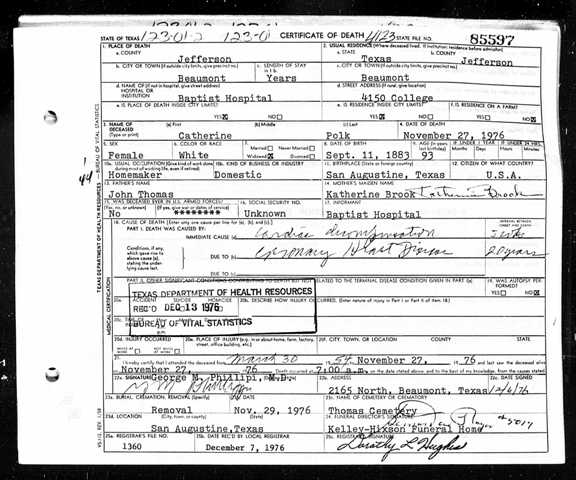 STATE OF TEXAS 123-01-2 123-01 CERTIFICATE OF DEATH 4123 STATE FILE NO. 85597
1. PLACE OF DEATH 2. USUAL RESIDENCE (Where deceased lived. If institution: residence before admission)
a. COUNTY Jefferson a. STATE Texas b. COUNTY Jefferson
b. CITY OR TOWN (If outside city limits, give precinct no.) c. LENGTH OF STAY in 1 b. c. CITY OR TOWN (If outside city limits, give precinct no.)
Beaumont Years Beaumont
d. NAME OF (If not in hospital, give street address) HOSPITAL OR INSTITUTION d. STREET ADDRESS (If rural, give location)
Baptist Hospital 4150 College
e. IS PLACE OF DEATH INSIDE CITY LIMITS? e. IS RESIDENCE INSIDE CITY LIMITS? f. IS RESIDENCE ON A FARM?
YES NO YES NO YES NO
3. NAME OF DECEASED (Type or print) (a) First (b) Middle (c) Last 4. DATE OF DEATH
Catherine Polk November 27, 1976
5. SEX 6. COLOR OR RACE 7. Married Never Married 8. DATE OF BIRTH 9. AGE (In years last birthday) IF UNDER 1 YEAR IF UNDER 24 HRS.
Female White Widowed Divorced Sept. 11, 1883 93 Months Days Hours Minutes
10a. USUAL OCCUPATION (Give kind of work done during most of working life, even if retired) 10b. KIND OF BUSINESS OR INDUSTRY 11. BIRTHPLACE (State or foreign country) 12. CITIZEN OF WHAT COUNTRY?
Homemaker Domestic San Augustine, Texas U.S.A.
13. FATHER'S NAME 14. MOTHER'S MAIDEN NAME
John Thomas Katherine Brook Katherine Brook
15. WAS DECEASED EVER IN U.S. ARMED FORCES? 16. SOCIAL SECURITY NO. 17. INFORMANT
(Yes, no, or unknown) (If yes, give war or dates of service)
No ******** Unknown Baptist Hospital
18. CAUSE OF DEATH [Enter only one cause per line for (a), (b), and (c).] INTERVAL BETWEEN ONSET AND DEATH
PART I. DEATH WAS CAUSED BY:
IMMEDIATE CAUSE (a) Cardiac decompensation
Conditions, if any, which gave rise to above cause (a), stating the underlying cause last. DUE TO (b) Coronary Heart Disease 20 years
DUE TO (c)
PART II. OTHER SIGNIFICANT CONDITIONS CONTRIBUTING TO DEATH BUT NOT RELATED TO THE TERMINAL DISEASE CONDITION GIVEN IN PART I (a) 19. WAS AUTOPSY PERFORMED?
YES NO
TEXAS DEPARTMENT OF HEALTH RESOURCES
20a. ACCIDENT SUICIDE HOMICIDE 20b. DESCRIBE HOW INJURY OCCURRED. (Enter nature of injury in Part I or Part II of item 18.)
REC'D DEC 13 1976
BUREAU OF VITAL STATISTICS
20d. INJURY OCCURRED 20e. PLACE OF INJURY (e.g. in or about home, farm, factory, street, office building, etc.) 20f. CITY, TOWN, OR LOCATION COUNTY STATE
21. I hereby certify that I attended the deceased from March 30 54 November 27, 76 and last saw the deceased alive
on November 27, 76 Death occurred at 7:00 a.m. on the date stated above, and to the best of my knowledge, from the causes stated.
22a. SIGNATURE George M. Philipi, M.D. 22b. ADDRESS 22c. DATE SIGNED
2165 North, Beaumont, Texas 12/6/76
23a. BURIAL, CREMATION, REMOVAL (Specify) 23b. DATE 23c. NAME OF CEMETERY OR CREMATORY
Removal Nov. 29, 1976 Thomas Cemetery
23d. LOCATION (City, town, or county) (State) 24. FUNERAL DIRECTOR'S SIGNATURE
San Augustine, Texas Kelley-Hixson Funeral Home
25a. REGISTRAR'S FILE NO. 25b. DATE REC'D BY LOCAL REGISTRAR 25c. REGISTRAR'S SIGNATURE
1360 December 7, 1976 Dorothy L Hughes
TEXAS DEPARTMENT OF HEALTH RESOURCES — BUREAU OF VITAL STATISTICS
MEDICAL CERTIFICATION